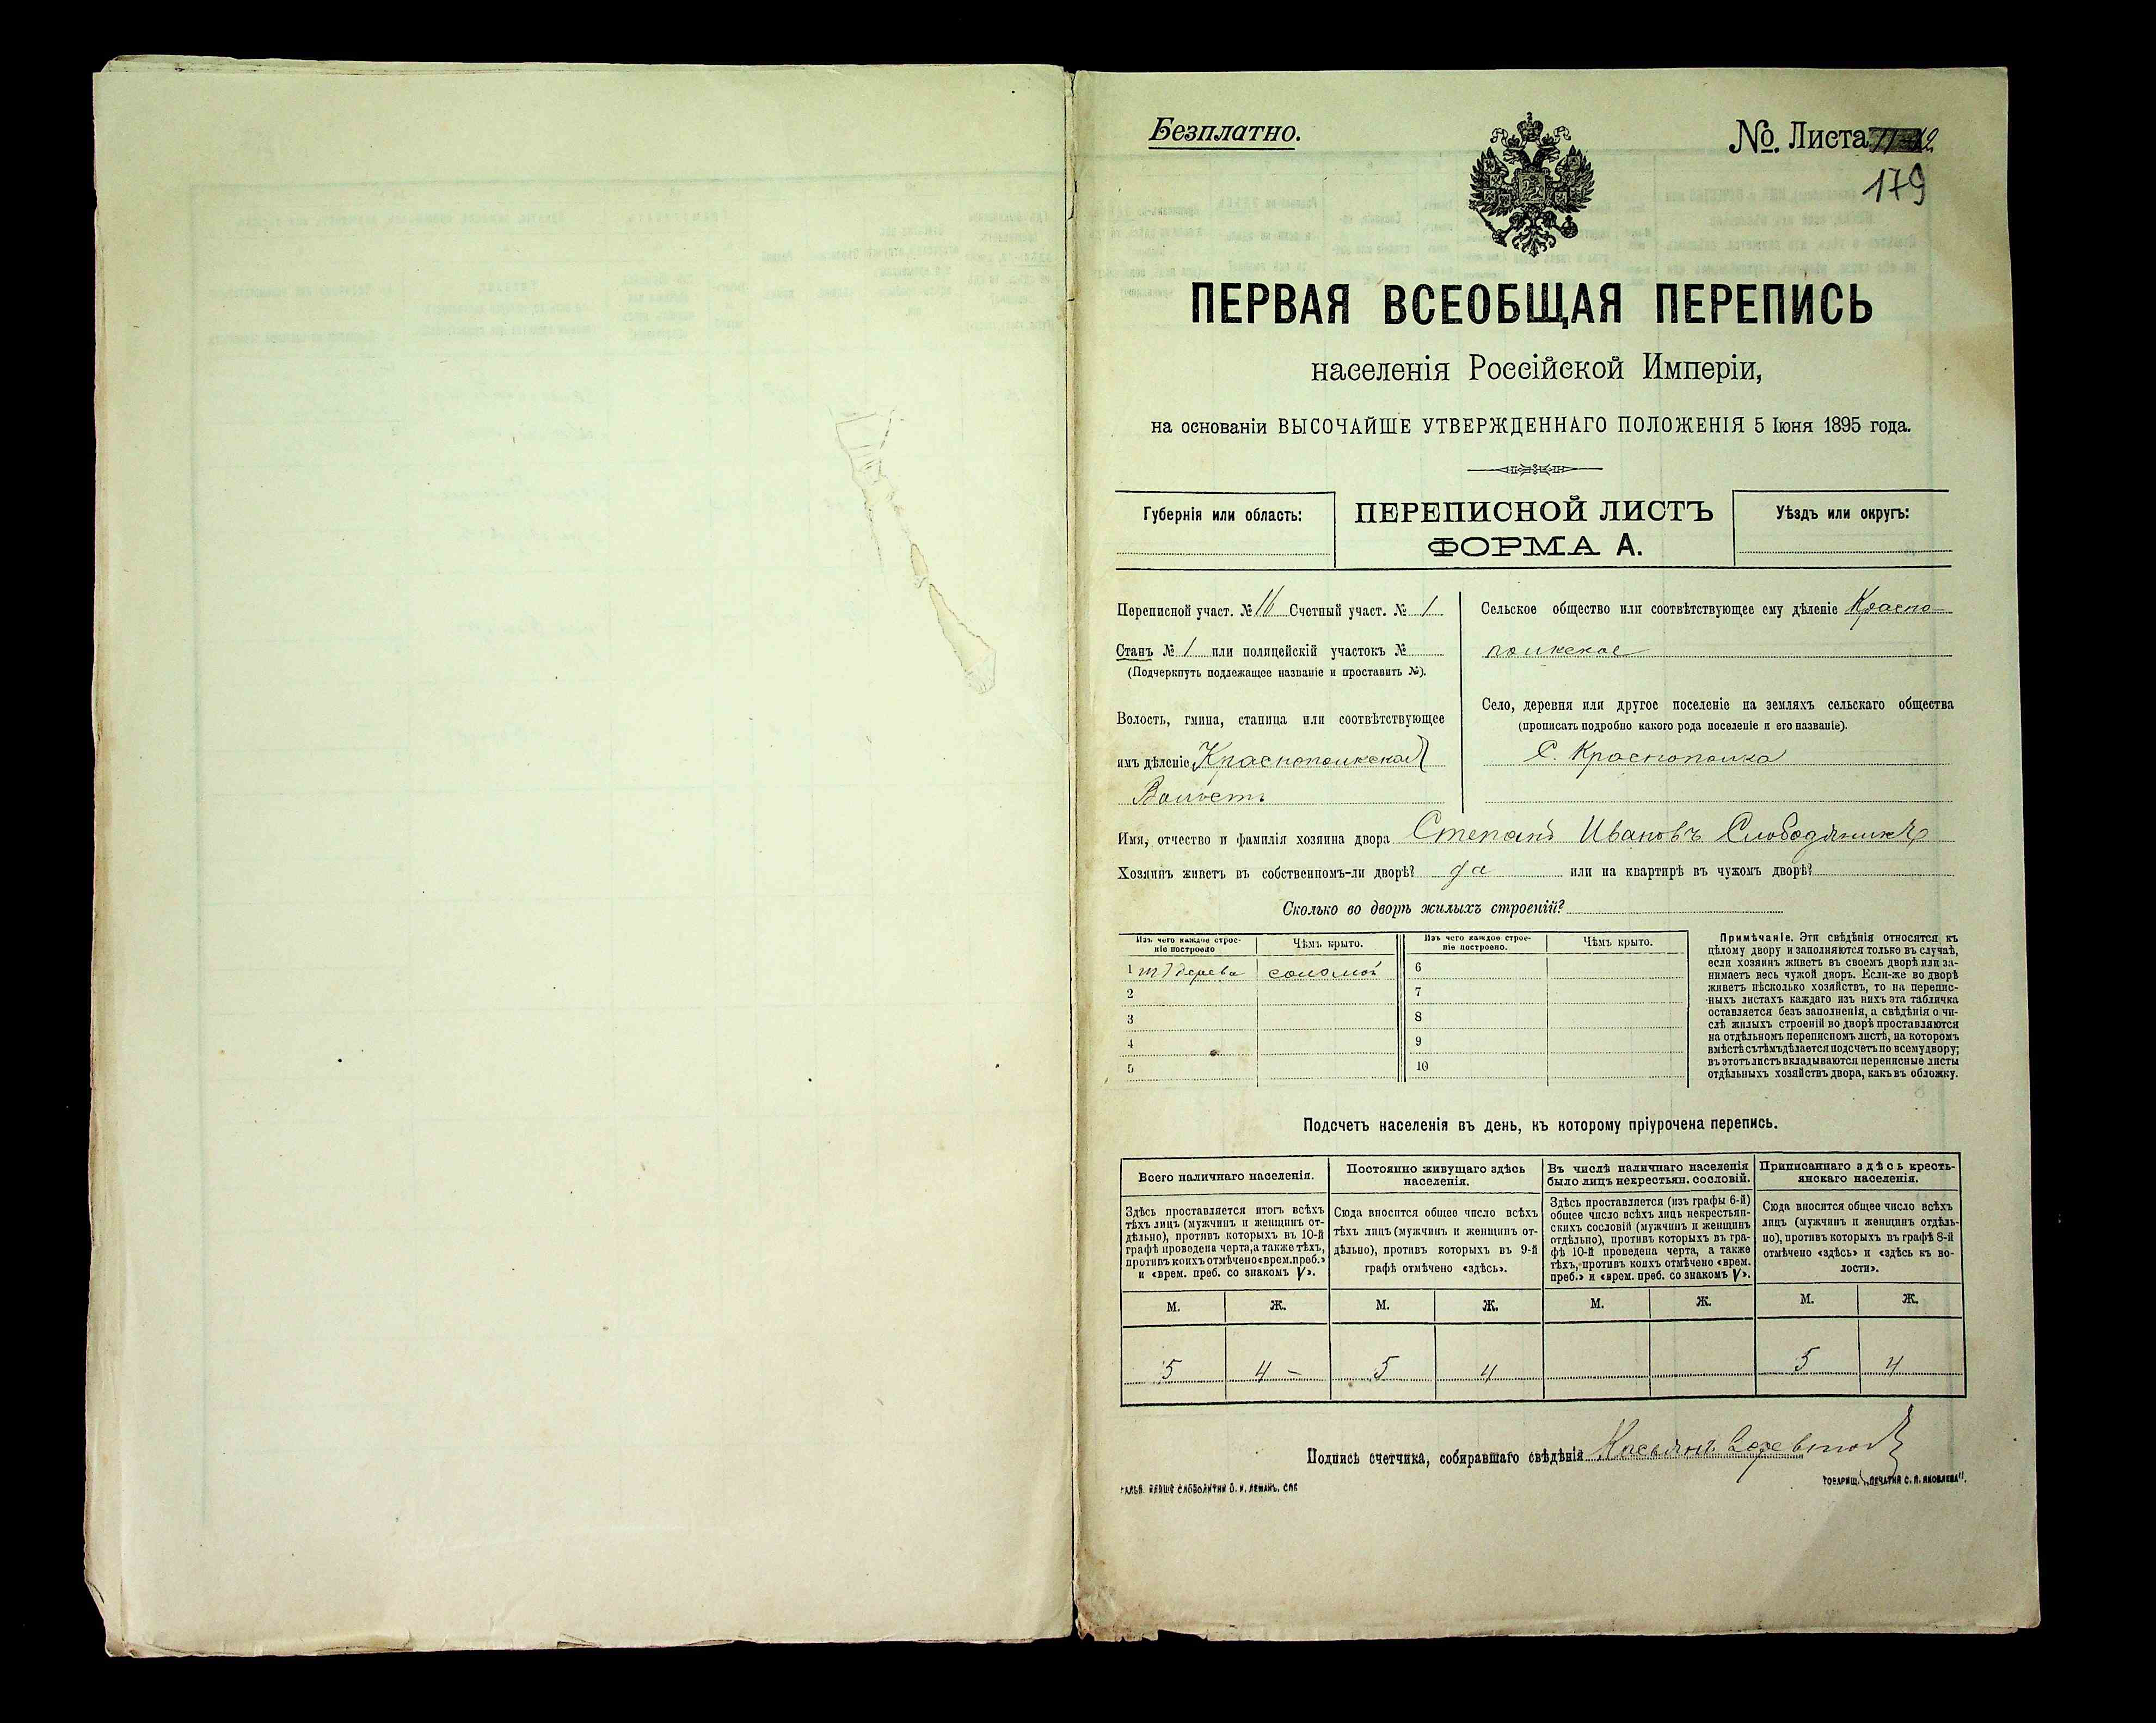 Безплатно.
No. Листа
179
ПЕРВАЯ ВСЕОБЩАЯ ПЕРЕПИСЬ
населенія Россійской Имперіи,
на основаніи ВЫСОЧАЙШЕ УТВЕРЖДЕННАГО ПОЛОЖЕНІЯ 5 Іюня 1895 года.
Губернія или область:
ПЕРЕПИСНОЙ ЛИСТЪ
ФОРМА А.
Уѣздъ или округъ:
Переписной участ. № 16 Счетный участ. № 1
Станъ № 1 или полицейскій участокъ №
(Подчеркнуть подлежащее названіе и проставить №).
Волость, гмина, станица или соотвѣтствующее
имъ дѣленіе Краснопольская
Волость
Сельское общество или соотвѣтствующее ему дѣленіе Красно-
польское
Село, деревня или другое поселеніе на земляхъ сельскаго общества
(прописать подробно какого рода поселеніе и его названіе).
С. Краснополка
Имя, отчество и фамилія хозяина двора Степанъ Ивановъ Слободяникъ
Хозяинъ живетъ въ собственномъ-ли дворѣ? да или на квартирѣ въ чужомъ дворѣ?
Сколько во дворѣ жилыхъ строеній?
Изъ чего каждое строе-
ніе построено
Чѣмъ крыто.
Изъ чего каждое строе-
ніе построено.
Чѣмъ крыто.
1 дерева соломой
2
3
4
5
6
7
8
9
10
Примѣчаніе. Эти свѣдѣнія относятся къ
цѣлому двору и заполняются только въ случаѣ,
если хозяинъ живетъ въ своемъ дворѣ или за-
нимаетъ весь чужой дворъ. Если-же во дворѣ
живетъ нѣсколько хозяйствъ, то на перепис-
ныхъ листахъ каждаго изъ нихъ эта табличка
оставляется безъ заполненія, а свѣдѣнія о чи-
слѣ жилыхъ строеній во дворѣ проставляются
на отдѣльномъ переписномъ листѣ, на которомъ
вмѣстѣ съ тѣмъ дѣлается подсчетъ по всему двору;
въ этотъ листъ вкладываются переписные листы
отдѣльныхъ хозяйствъ двора, какъ въ обложку.
Подсчетъ населенія въ день, къ которому пріурочена перепись.
Всего наличнаго населенія.
Здѣсь проставляется итогъ всѣхъ
тѣхъ лицъ (мужчинъ и женщинъ от-
дѣльно), противъ которыхъ въ 10-й
графѣ проведена черта, а также тѣхъ,
противъ коихъ отмѣчено «врем. преб.»
и «врем. преб. со знакомъ V».
Постоянно живущаго здѣсь
населенія.
Сюда вносится общее число всѣхъ
тѣхъ лицъ (мужчинъ и женщинъ от-
дѣльно), противъ которыхъ въ 9-й
графѣ отмѣчено «здѣсь».
Въ числѣ наличнаго населенія
было лицъ некрестьян. сословій.
Здѣсь проставляется (изъ графы 6-й)
общее число всѣхъ лицъ некрестьян-
скихъ сословій (мужчинъ и женщинъ
отдѣльно), противъ которыхъ въ гра-
фѣ 10-й проведена черта, а также
тѣхъ, противъ коихъ отмѣчено «врем.
преб.» и «врем. преб. со знакомъ V».
Приписаннаго здѣсь кресть-
янскаго населенія.
Сюда вносится общее число всѣхъ
лицъ (мужчинъ и женщинъ отдѣль-
но), противъ которыхъ въ графѣ 8-й
отмѣчено «здѣсь» и «здѣсь къ во-
лости».
М. Ж. М. Ж. М. Ж. М. Ж.
5 4 – 5 4 5 4
Подпись счетчика, собиравшаго свѣдѣнія Касьянъ
ТОВАРИЩ. „ПЕЧАТНЯ С. П. ЯКОВЛЕВА".